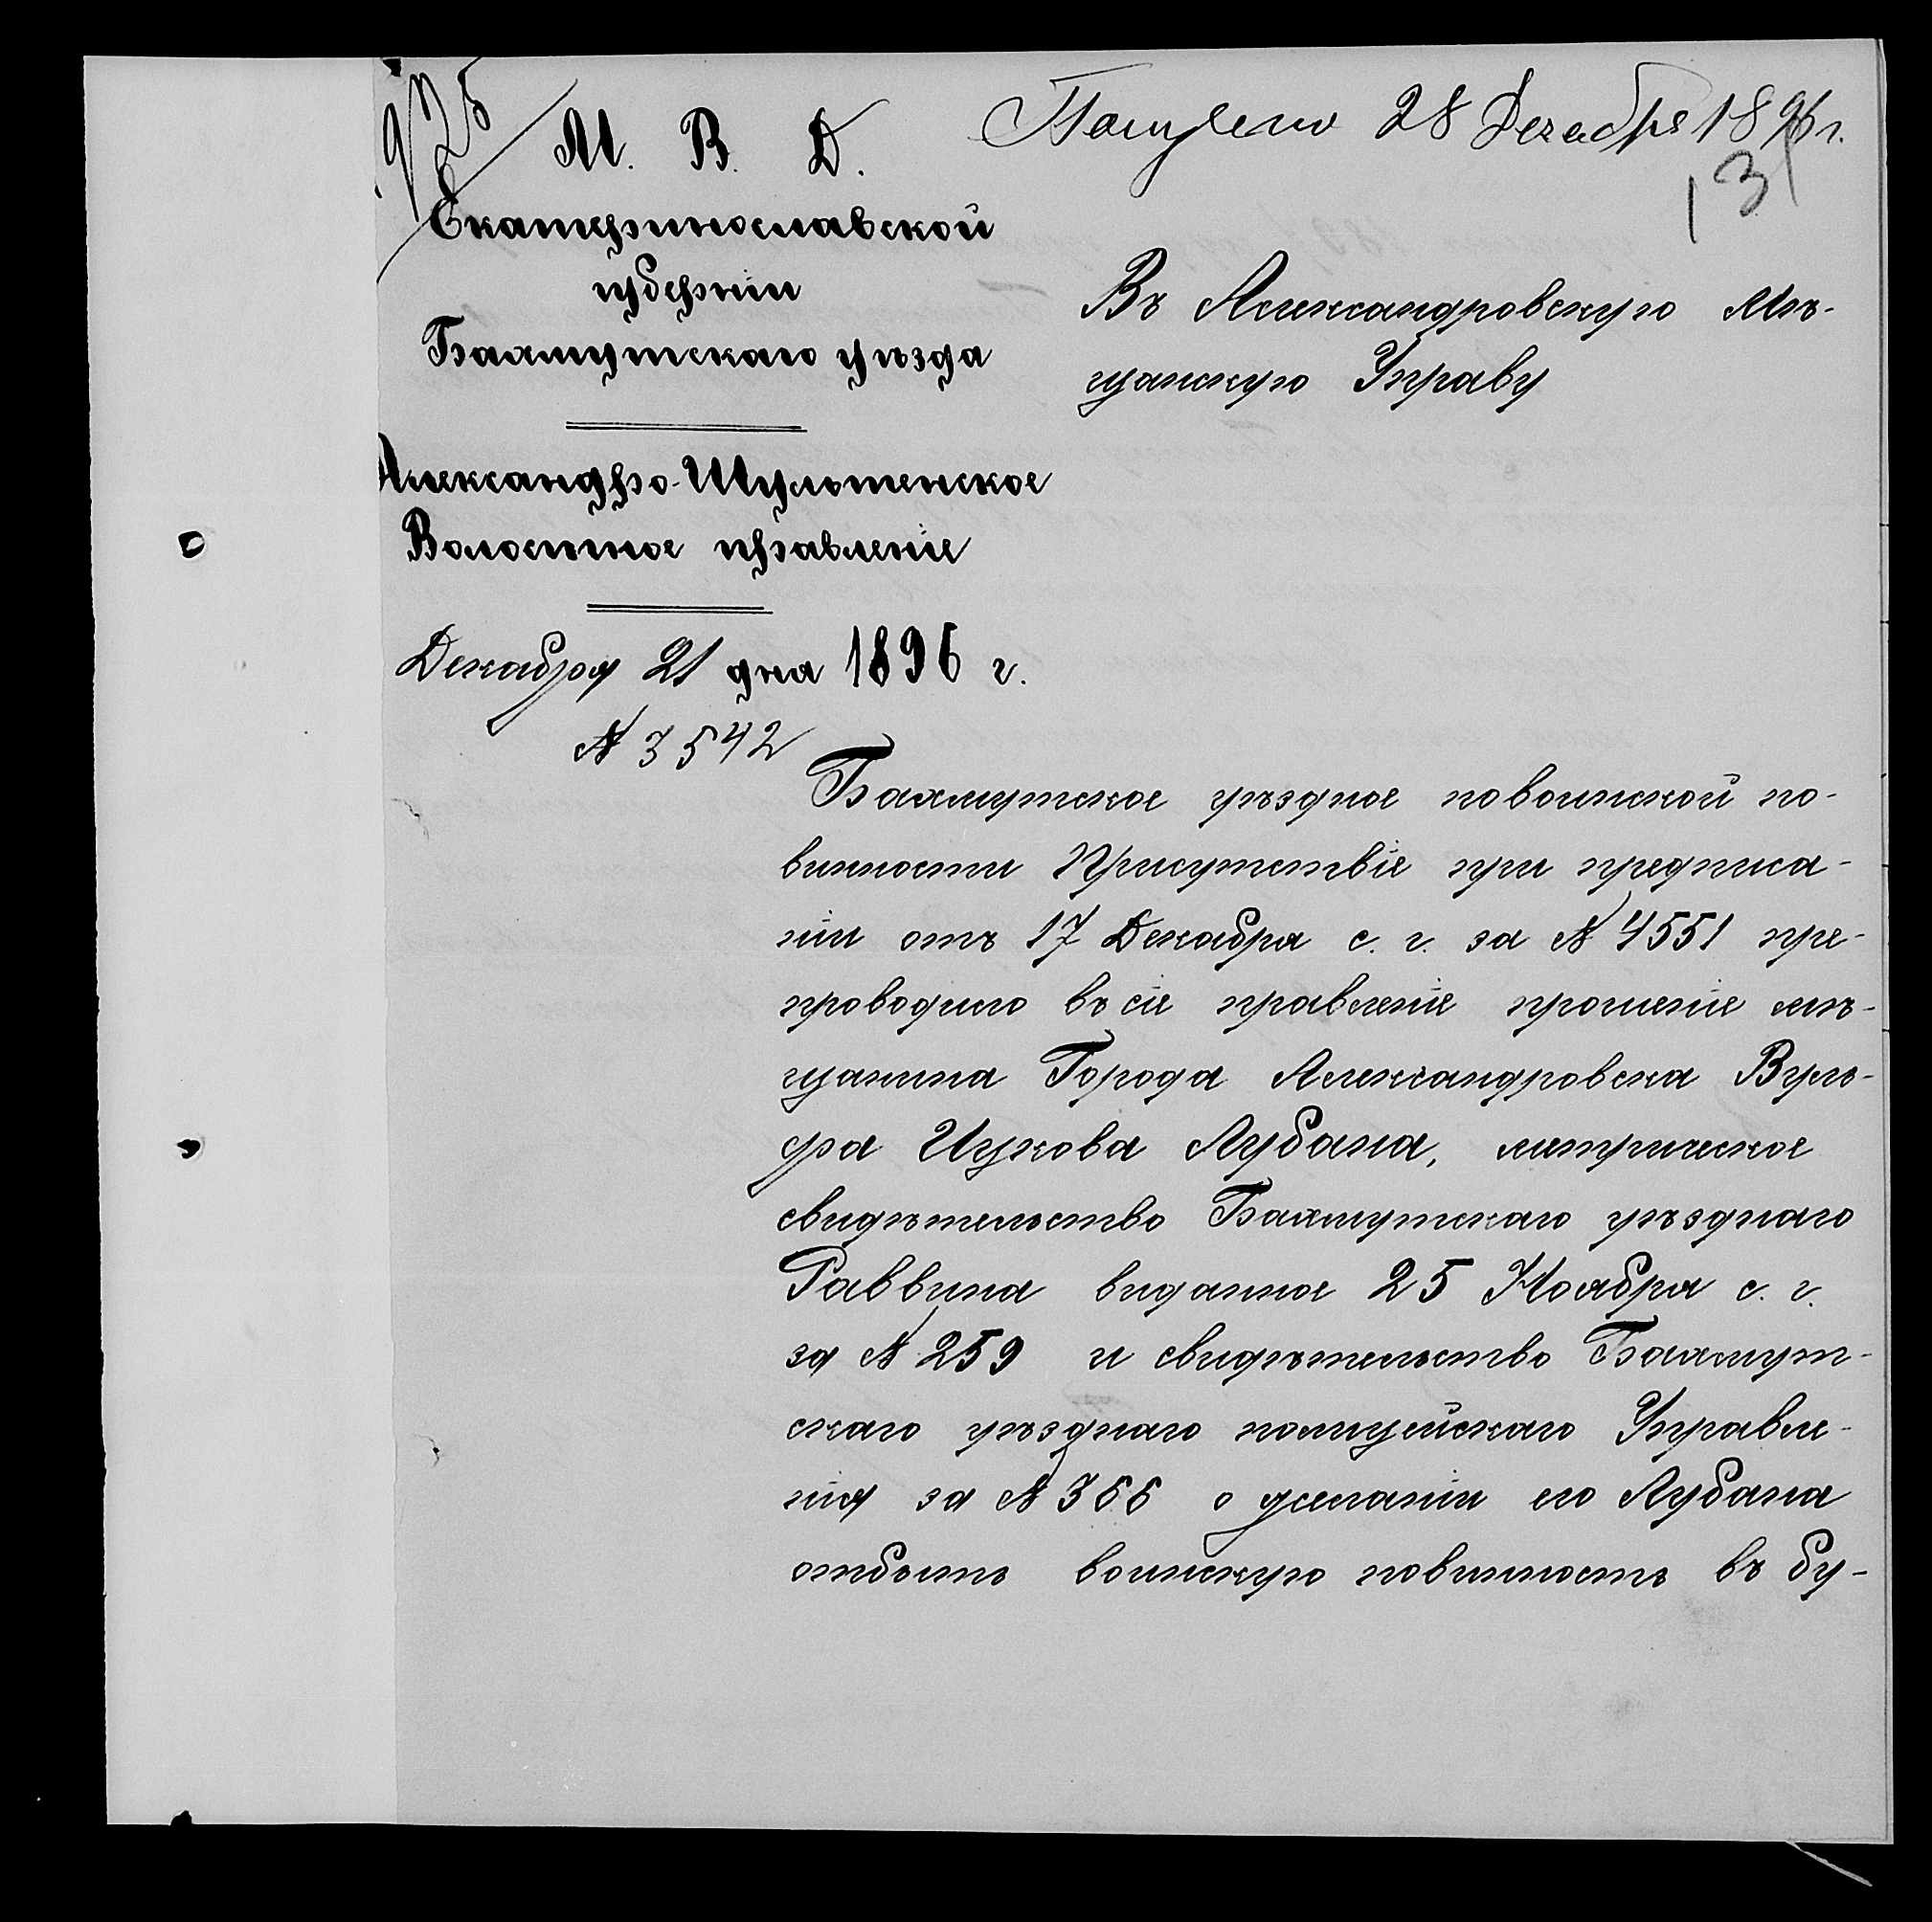 925
Получено 28 Декабря 1896 г.
13
М. В. Д.
Екатеринославской
губерніи
Бахмутскаго уѣзда
Александро-Шультенское
Волостное правленіе
Декабря 21 дня 1896 г.
№ 3542
Въ Александровскую Мѣ-
щанскую Управу
Бахмутское уѣздное по воинской по-
винности Присутствіе при предписа-
ніи отъ 17 Декабря с. г. за № 4551 пре-
проводило въ сіе правленіе прошеніе мѣ-
щанина Города Александровска Вуль-
фа Ицкова Лубана, метрическое
свидѣтельство Бахмутскаго уѣзднаго
Раввина виданное 25 Ноября с. г.
за № 259 и свидѣтельство Бахмут-
скаго уѣзднаго полицейскаго Управле-
нія за № 366 о желаніи его Лубана
отбыть воинскую повинность въ бу-